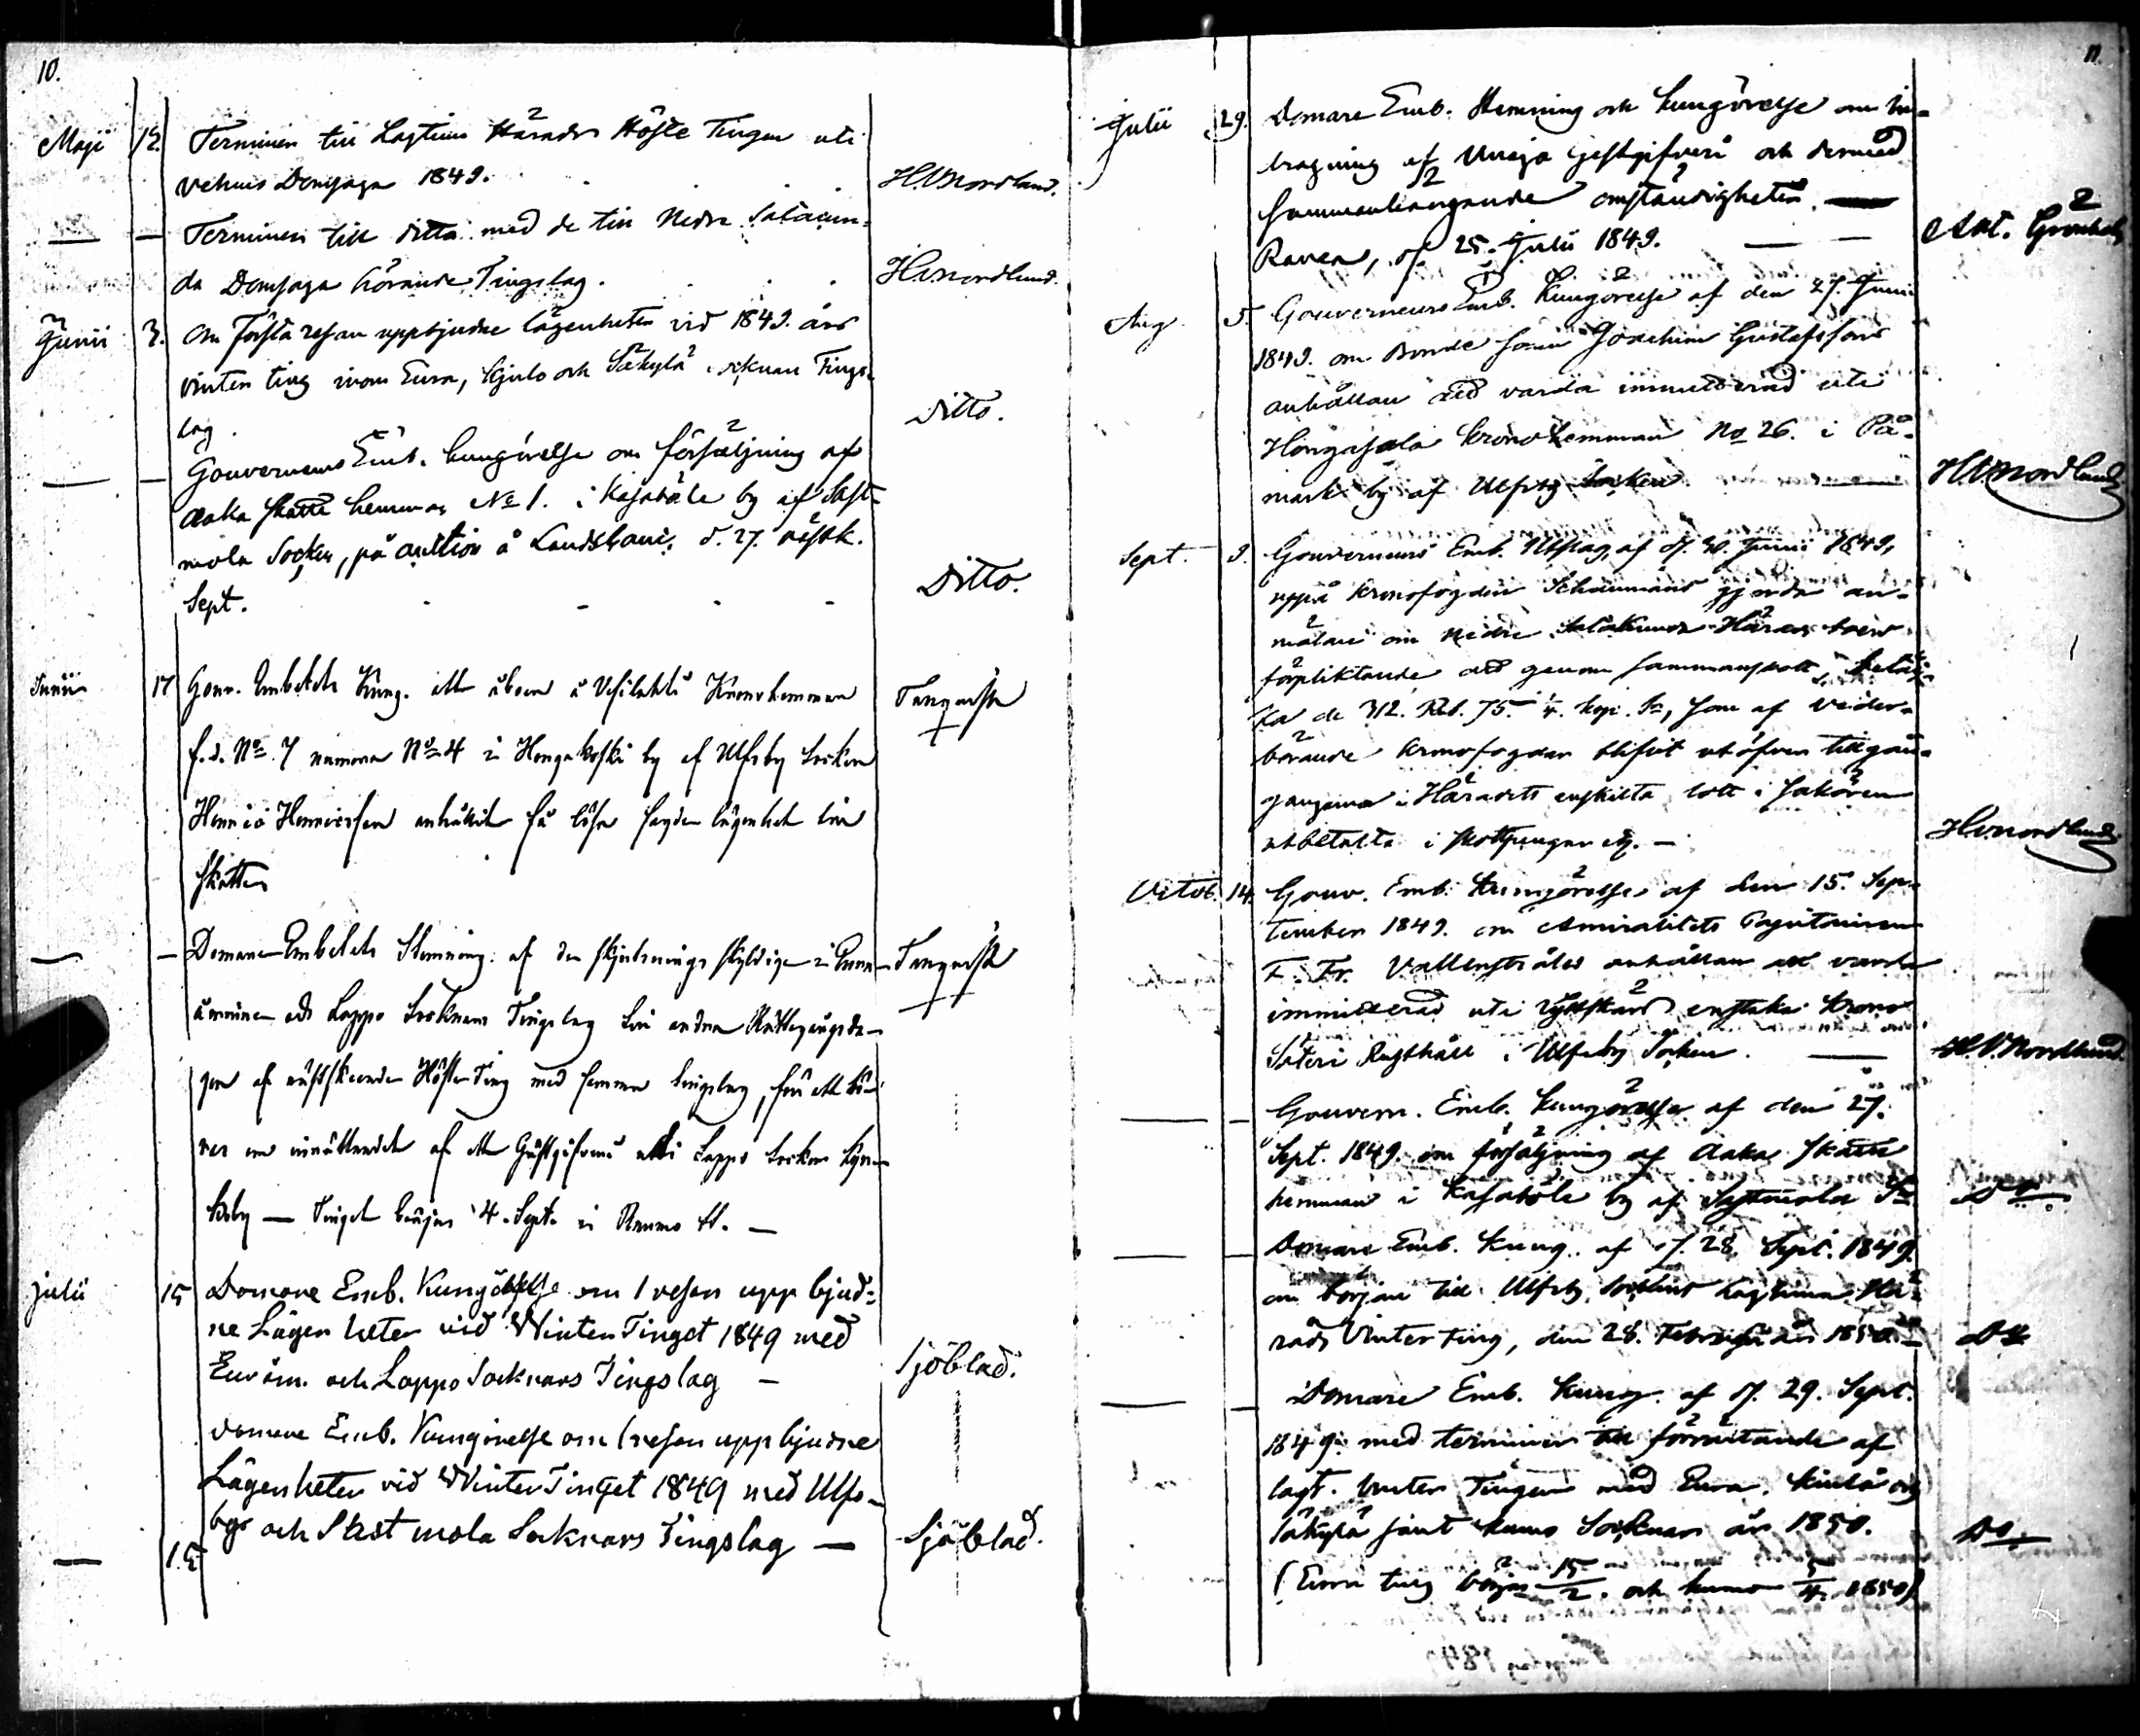 10.
Maji 12. Terminen till Lagtima Härads Höste Tingen uti
Vehmo Domsaga 1849. H.V. Nordlund.
— — Terminen till ditto med de till Nedre Satacun-
da Domsaga hörande Tingslag. H.V. Nordlund.
Junii 3. Om första resan uppbjudne lägenheter vid 1849. års
vinter ting inom Eura, Kjulo och Säkylä socknars Tings-
lag. Ditto.
— — Gouverneurs Emb. kungörelse om försäljning af
Aaka skatte hemman No 1. i Kasaböle by af Sast-
mola Socken, på auktion å Landskans. d. 27. nästk.
Sept. Ditto.
Junii 17 Gouv. Embetets Kung. att åboen å Kronohemman
f.d. No 7 numera No 4 i Hongakoski by af Ulfsby Socken
Henric Henricsson anhållit få lösa sagde lägenhet till
skatte
— — Domare Embetets Stemning af de skjutsnings skyldige i Eura-
åminne och Lappo Socknars Tingslag till andra Rättegångsda-
gen af nästskeende Höste Ting med samma tingslag, för att hö-
ras om inrättandet af ett Gästgifveri uti Lappo Socken
by — Tinget börjas 4. Sept. i Raumo st. —
Julii 15 Domare Emb. Kungörelse om 1 resan upp bjud-
ne Lägenheter vid WinterTinget 1849 med
Euråm. och Lappo Socknars Tingslag — Sjöblad.
domare Emb. Kungörelse om 1 resan upp bjudne
Lägenheter vid WinterTinget 1849 med Ulfs-
by och Sastmola Socknars Tingslag — Sjöblad.
— 15
11.
Julii 29. Domare Emb. Stemning och kungörelse om in-
dragning af gestgifveri och dermed
sammanhängande omständigheter. —
Rauea, d. 25. Julii 1849. — — Ant. Grönholm
Aug. 5. Gouverneurs Emb. Kungörelse af den 27. Junii
1849. om Bonde sonen Joachim Gustafssons
anhållan att varda immitterad uti
Hongasala Kronohemman No 26. i På-
mark by af Ulfsby Socken — H.V. Nordlund
Sept. 9. Gouverneurs Emb. Utslag af d. 30. Junii 1849,
uppå Kronofogden Schaumans gjorde an-
mälan om Nedre Satakunda Härads boers
förpliktande att genom sammanskott
de 312. Rub. 75 1/4. kop. Sr, som af veder-
börande Kronofogdar blifvit utöfver tillgån-
garna i Häradets enskilta lott i sakören
utbetalta i skottpengar etc. — H.V. Nordlund
Octob. 14. Gouv. Emb. Kungörelse af den 15. Sep-
tember 1849. om Amiralitets Capitainen
F. Fr. Vallenstråles anhållan att varda
immitterad uti enstaka Krono
Säteri Rusthåll i Ulfsby Socken. — H.V. Nordlund.
— — Gouvern. Emb. kungörelse af den 27.
Sept. 1849. om försäljning af Aaka skatte
hemman i Kasaböle by af Sastmola Sn Do.
— — Domare Emb. Kung. af d. 28. Sept. 1849.
om början till Ulfsby Sockens Lagtima Hä-
rads Vinter Ting, den 28. Februarii år 1850. — Do
— — Domare Emb. Kung. af d. 29. Sept.
1849. med terminer till förrättande af
lagt. Vinter Tingen med Eura, Kiulo och
Säkylä samt Kumo Socknar år 1850. Do.
(Eura ting börjas 15/2. och Kumo 5/4. 1850)